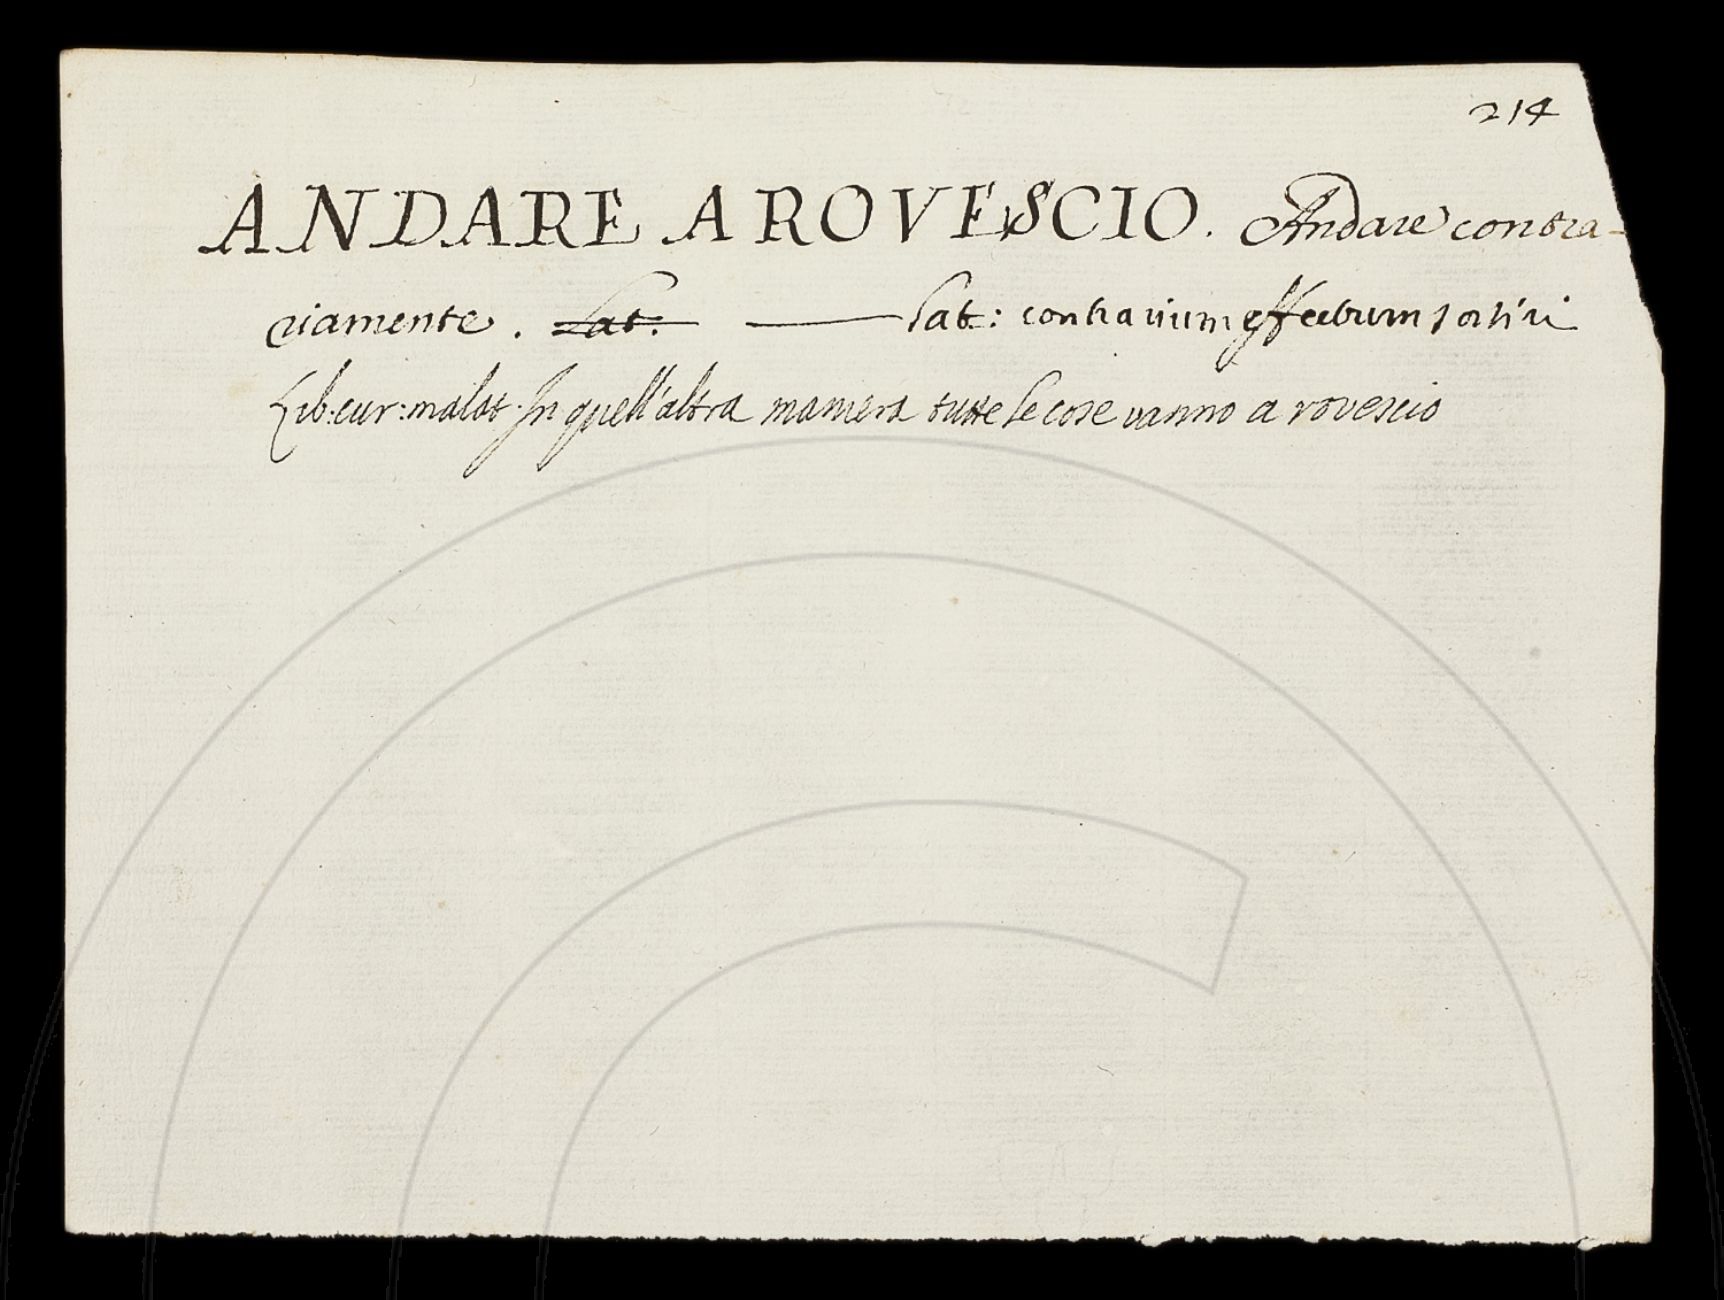 214
ANDARE A ROVESCIO. Andare contra-
riamente. Lat: Lat: contrarium effectum sortiri
Lib: cur: malat: In quell'altra maniera tutte le cose vanno a rovescio